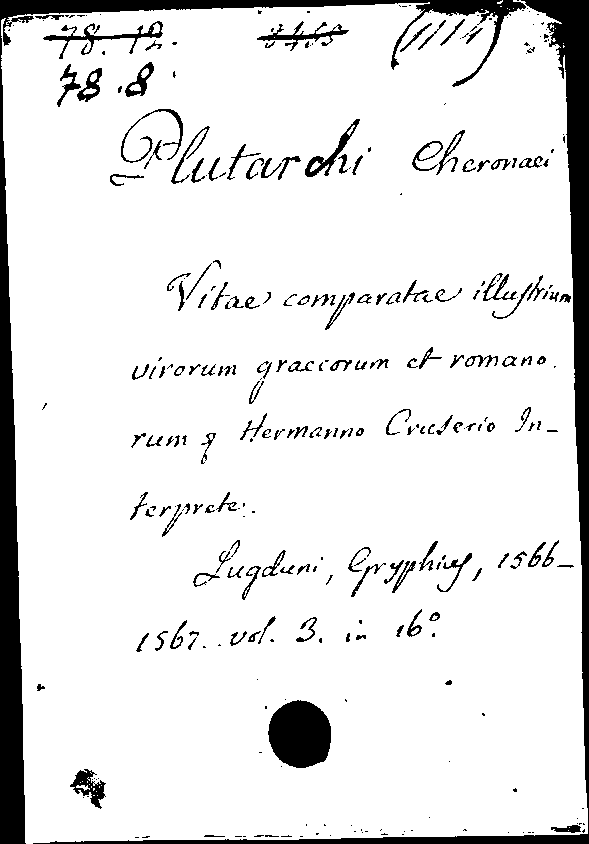 78. 12. (1114)
78.8
Plutarchi Cheronaei
Vitae comparatae illustrium
virorum graecorum et romano
rum q Hermanno Cruserio In-
terprete.
Lugduni, Gryphius, 1566-
1567. vol. 3. in 16º.